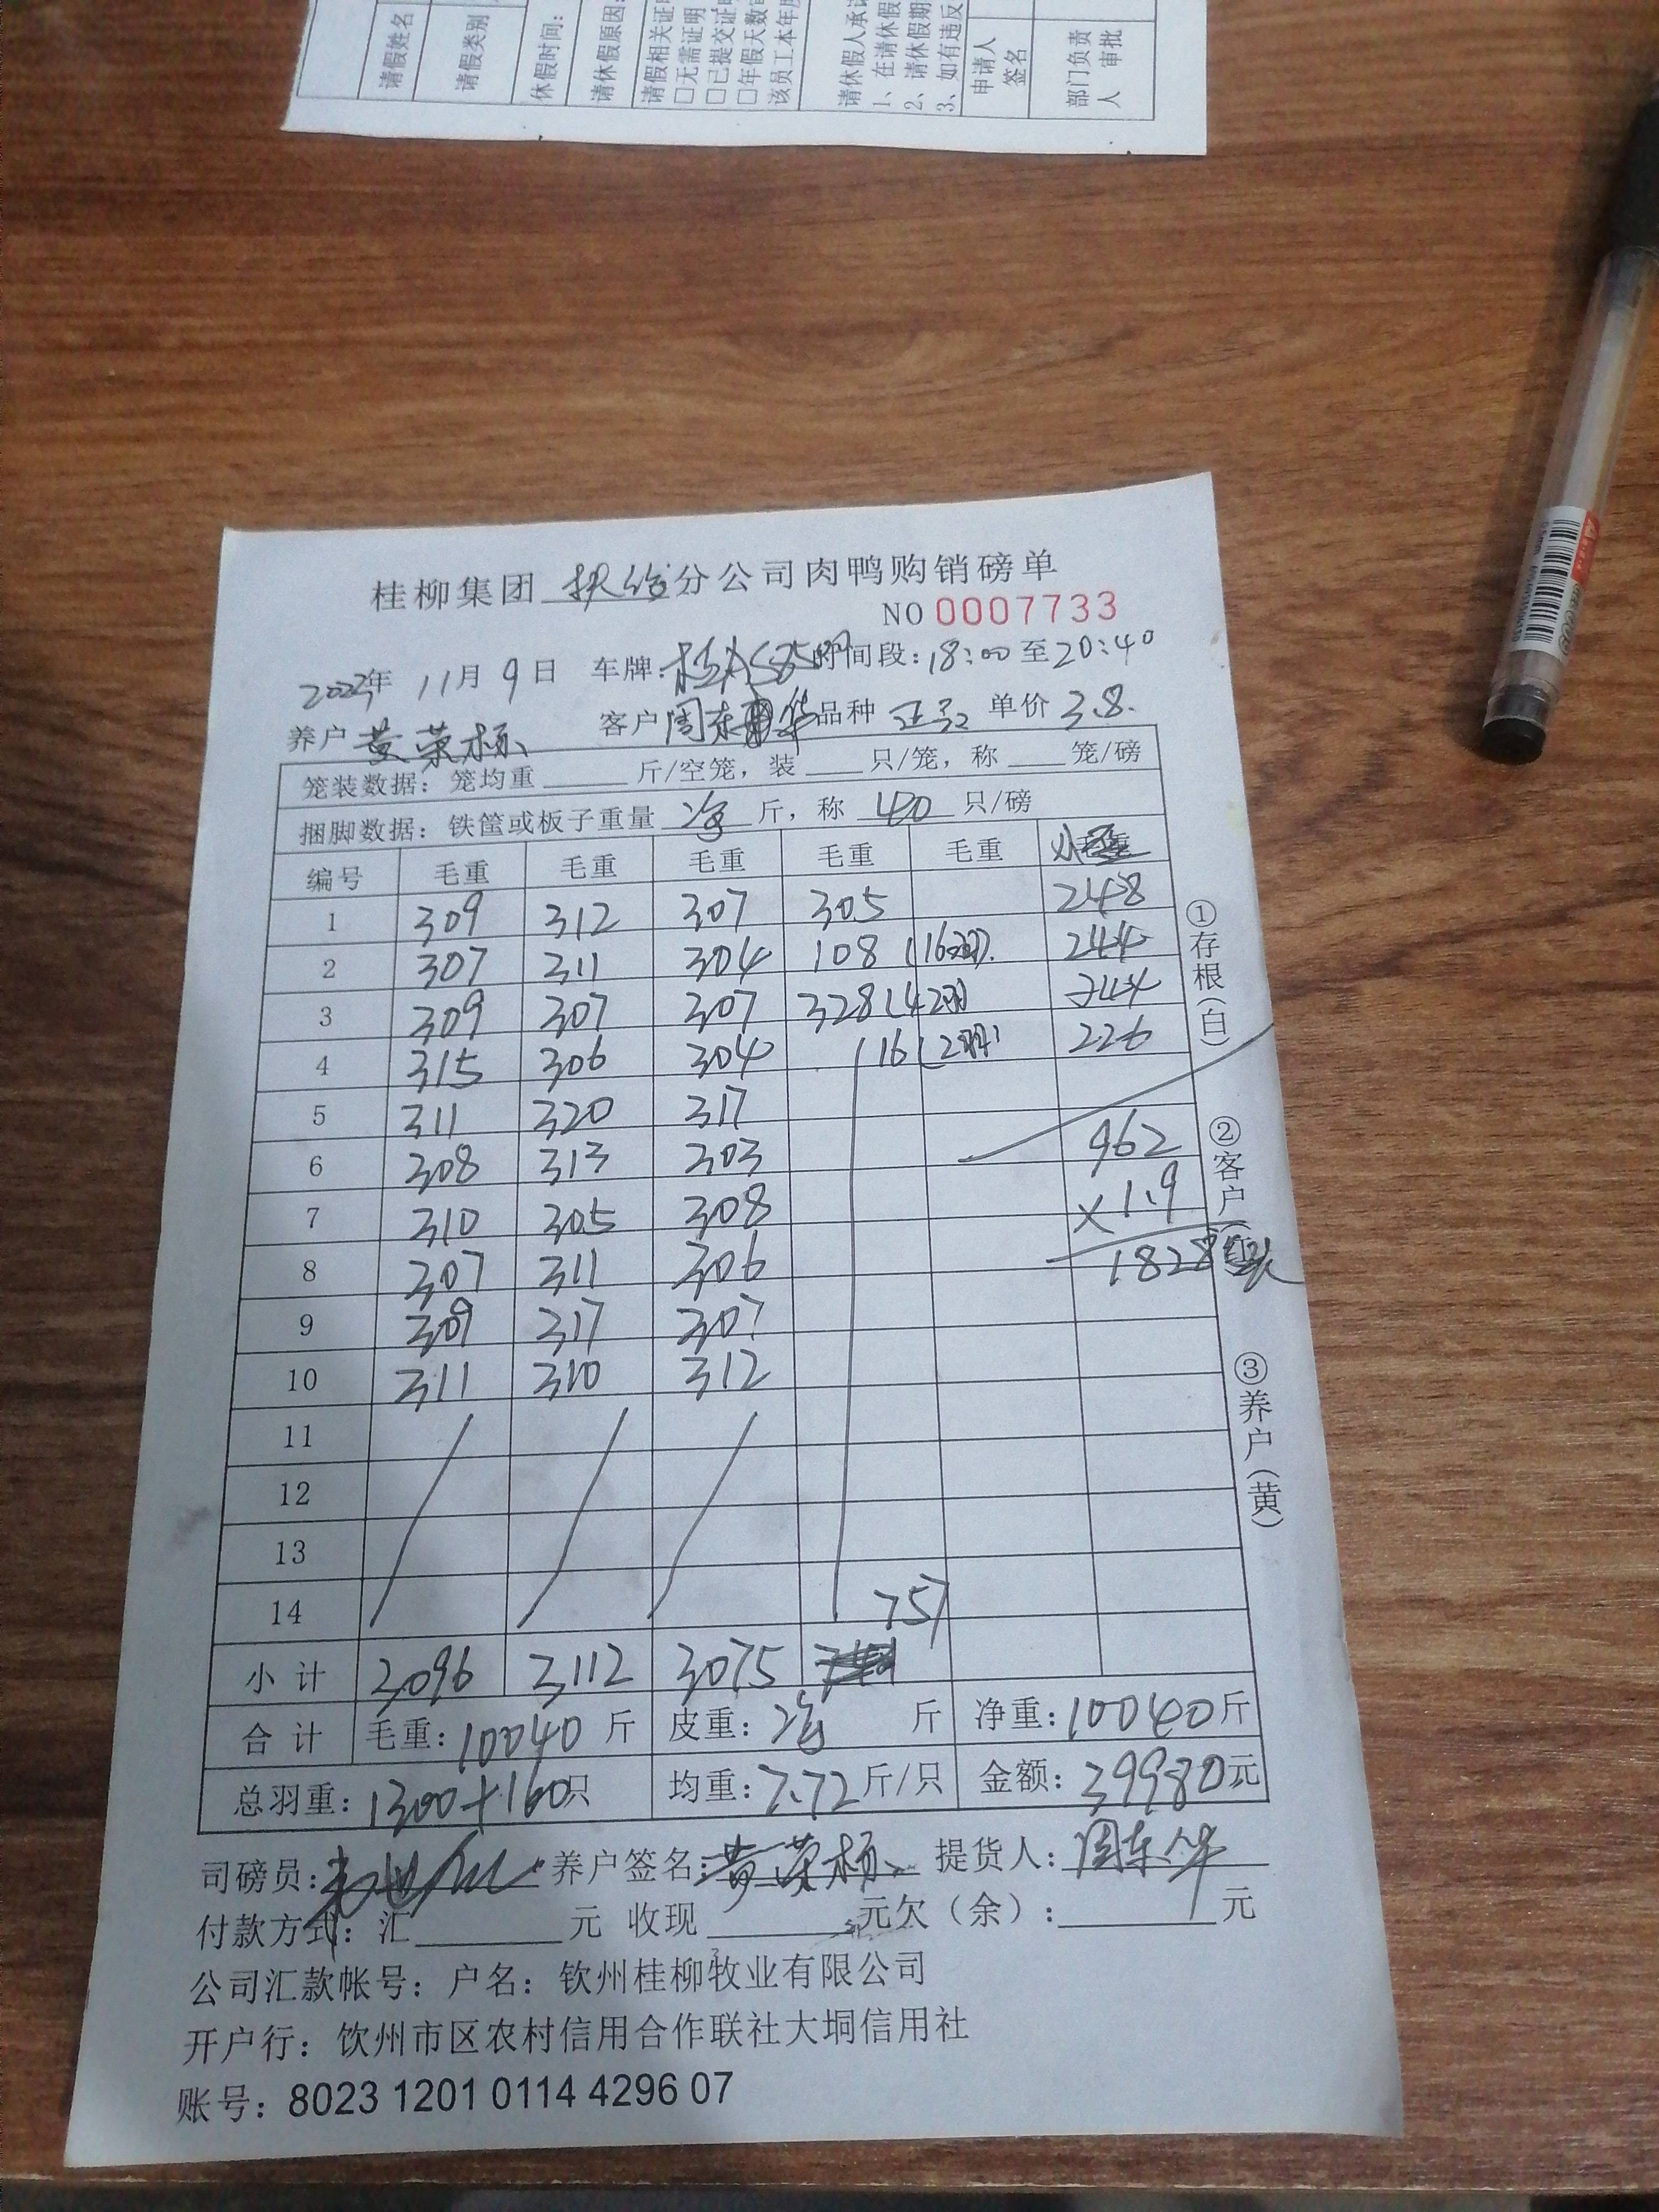 请假姓名
请假类别
休假时间:
请休假原因:
请假相关证
□无需证明
□已提交证
□年假天数
该员工本年度
请休假人承
1、在请休假
2、请休假期
3、如有违反
申请人
签名
部门负责
人
审批
桂柳集团 分公司肉鸭购销磅单
NO 0007733
2022年 11月9日 车牌: 时间段:18:00至20:40
养户 黄荣杨 客户 周东华 品种 正品 单价 3.8.
笼装数据: 笼均重 斤/空笼, 装 只/笼, 称 笼/磅
捆脚数据: 铁筐或板子重量 净 斤, 称 40 只/磅
编号 毛重 毛重 毛重 毛重 毛重
1 309 312 307 305 248
2 307 311 304 108 (16羽). 244
3 309 307 307 328 (42羽) 244
4 315 306 304 116 (2羽) 226
5 311 320 317
6 308 313 303 962
7 310 305 308 ×1.9
8 307 311 306 1828
9 309 317 307
10 311 310 312
11
12
13
14 757
小计 3096 3112 3075
合计 毛重: 10040 斤 皮重: 净 斤 净重: 10040斤
总羽重: 1300+160只 均重: 7.72斤/只 金额: 39980元
司磅员: 养户签名: 黄荣杨 提货人: 周东华
付款方式: 汇 元 收现 元欠(余): 元
公司汇款帐号: 户名: 钦州桂柳牧业有限公司
开户行: 钦州市区农村信用合作联社大垌信用社
账号: 8023 1201 0114 4296 07
①存根(白)
②客户
③养户(黄)